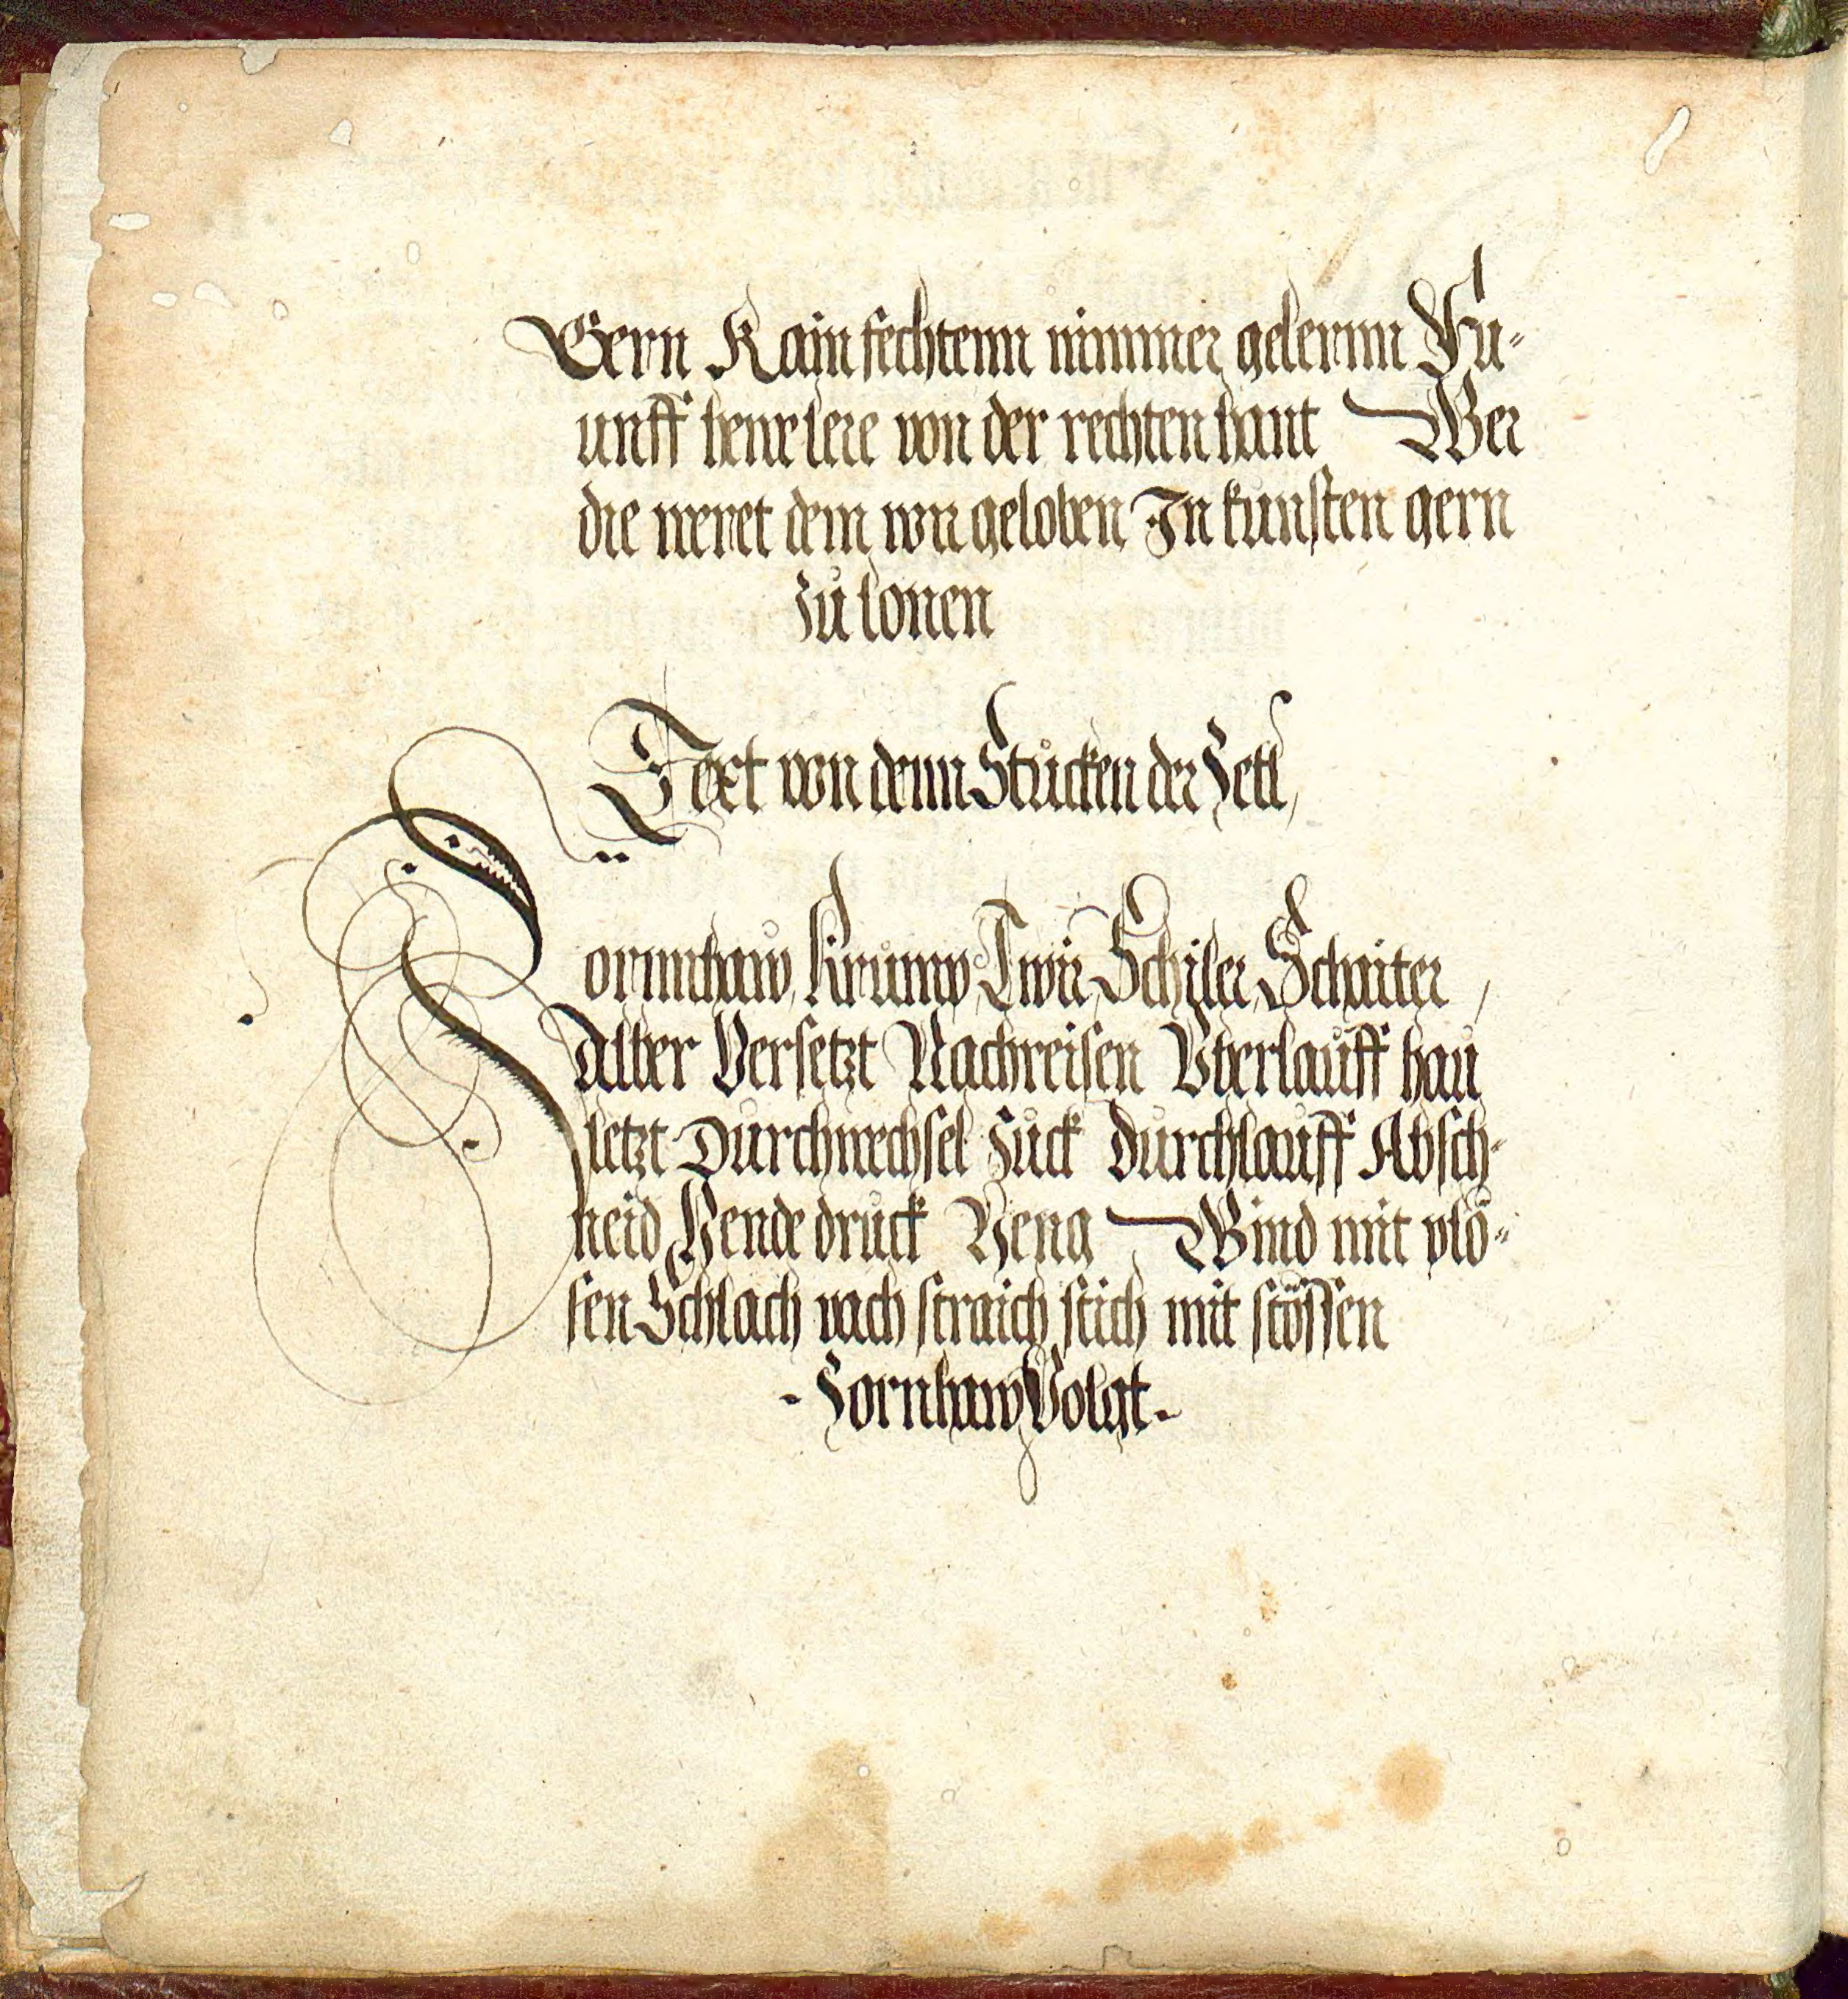 Gern Kain fechtenn nimmer gelernn Fu-
unff hewe lere von der rechten hant Wer
die weret dem wir geloben In kunsten gern
zů lonen
Text von denn Stucken der Zetl,
Zornnhaw, Krump, Twir, Schiler, Schaiter,
Alber Versetzt Nachreisen Vberlauff hau
letzt Durchwechsel zuck Durchlauff Absch-
neid Hende druck Heng Wind mit plö-
sen Schlach vach straich stich mit stössen
- Zornhaw Volgt -